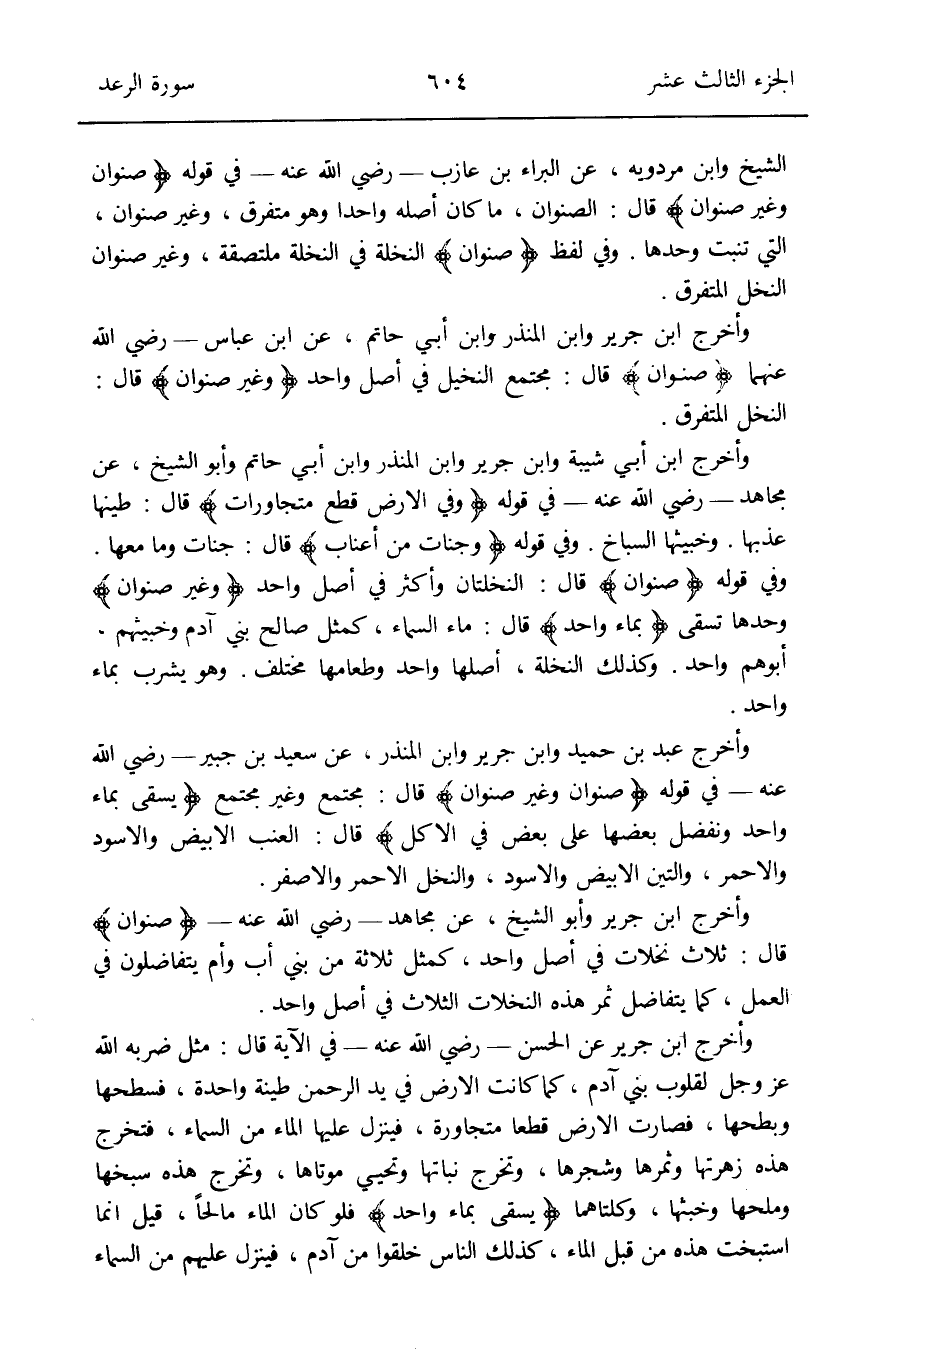 الجزء الثالث عشر ٦٠٤ سورة الرعد
الشيخ وابن مردويه ، عن البراء بن عازب — رضي الله عنه — في قوله ﴿ صنوان
وغير صنوان ﴾ قال : الصنوان ، ما كان أصله واحدا وهو متفرق ، وغير صنوان ،
التي تنبت وحدها . وفي لفظ ﴿ صنوان ﴾ النخلة في النخلة ملتصقة ، وغير صنوان
النخل المتفرق .
وأخرج ابن جرير وابن المنذر وابن أبي حاتم ، عن ابن عباس — رضي الله
عنهما ﴿ صنوان ﴾ قال : مجتمع النخيل في أصل واحد ﴿ وغير صنوان ﴾ قال :
النخل المتفرق .
وأخرج ابن أبي شيبة وابن جرير وابن المنذر وابن أبي حاتم وأبو الشيخ ، عن
مجاهد — رضي الله عنه — في قوله ﴿ وفي الارض قطع متجاورات ﴾ قال : طينها
عذبها . وخبيثها السباخ . وفي قوله ﴿ وجنات من أعناب ﴾ قال : جنات وما معها .
وفي قوله ﴿ صنوان ﴾ قال : النخلتان وأكثر في أصل واحد ﴿ وغير صنوان ﴾
وحدها تسقى ﴿ بماء واحد ﴾ قال : ماء السماء ، كمثل صالح بني آدم وخبيثهم .
أبوهم واحد . وكذلك النخلة ، أصلها واحد وطعامها مختلف . وهو يشرب بماء
واحد .
وأخرج عبد بن حميد وابن جرير وابن المنذر ، عن سعيد بن جبير — رضي الله
عنه — في قوله ﴿ صنوان وغير صنوان ﴾ قال : مجتمع وغير مجتمع ﴿ يسقى بماء
واحد ونفضل بعضها على بعض في الاكل ﴾ قال : العنب الابيض والاسود
والاحمر ، والتين الابيض والاسود ، والنخل الاحمر والاصفر .
وأخرج ابن جرير وأبو الشيخ ، عن مجاهد — رضي الله عنه — ﴿ صنوان ﴾
قال : ثلاث نخلات في أصل واحد ، كمثل ثلاثة من بني أب وأم يتفاضلون في
العمل ، كما يتفاضل ثمر هذه النخلات الثلاث في أصل واحد .
وأخرج ابن جرير عن الحسن — رضي الله عنه — في الآية قال : مثل ضربه الله
عز وجل لقلوب بني آدم ، كما كانت الارض في يد الرحمن طينة واحدة ، فسطحها
وبطحها ، فصارت الارض قطعا متجاورة ، فينزل عليها الماء من السماء ، فتخرج
هذه زهرتها وثمرها وشجرها ، وتخرج نباتها وتحيي موتاها ، وتخرج هذه سبخها
وملحها وخبثها ، وكلتاهما ﴿ يسقى بماء واحد ﴾ فلو كان الماء مالحاً ، قيل انما
استبخت هذه من قبل الماء ، كذلك الناس خلقوا من آدم ، فينزل عليهم من السماء